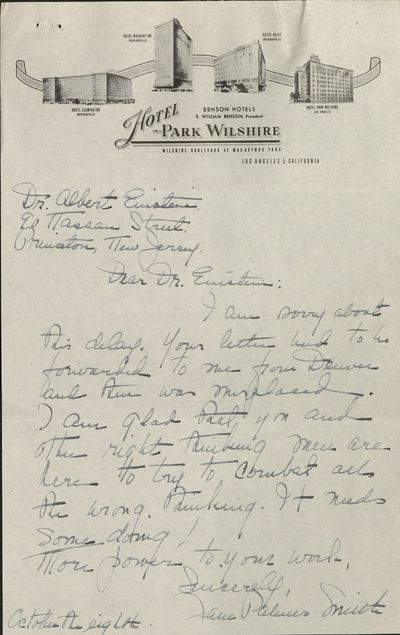 HOTEL WASHINGTON
INDIANAPOLIS
HOTEL
INDIANAPOLIS
HOTEL LEAMINGTON
MINNEAPOLIS
HOTEL PARK WILSHIRE
LOS ANGELES
BENSON HOTELS
E. WILLIAM BENSON, President
HOTEL
PARK WILSHIRE
WILSHIRE BOULEVARD AT MACARTHUR PARK
LOS ANGELES 5, CALIFORNIA
Dr. Albert Einstein,
90 Nassau Street.
Princeton, New Jersey.
Dear Dr. Einstein:
I am sorry about
this delay. Your letter had to be
forwarded to me from Denver
and then was misplaced.
I am glad that, you and
other right thinking men are
here to try to combat all
the wrong thinking. It needs
some doing!
More power to your work,
Sincerely,
Jane Palmer Smith
October the eighth.